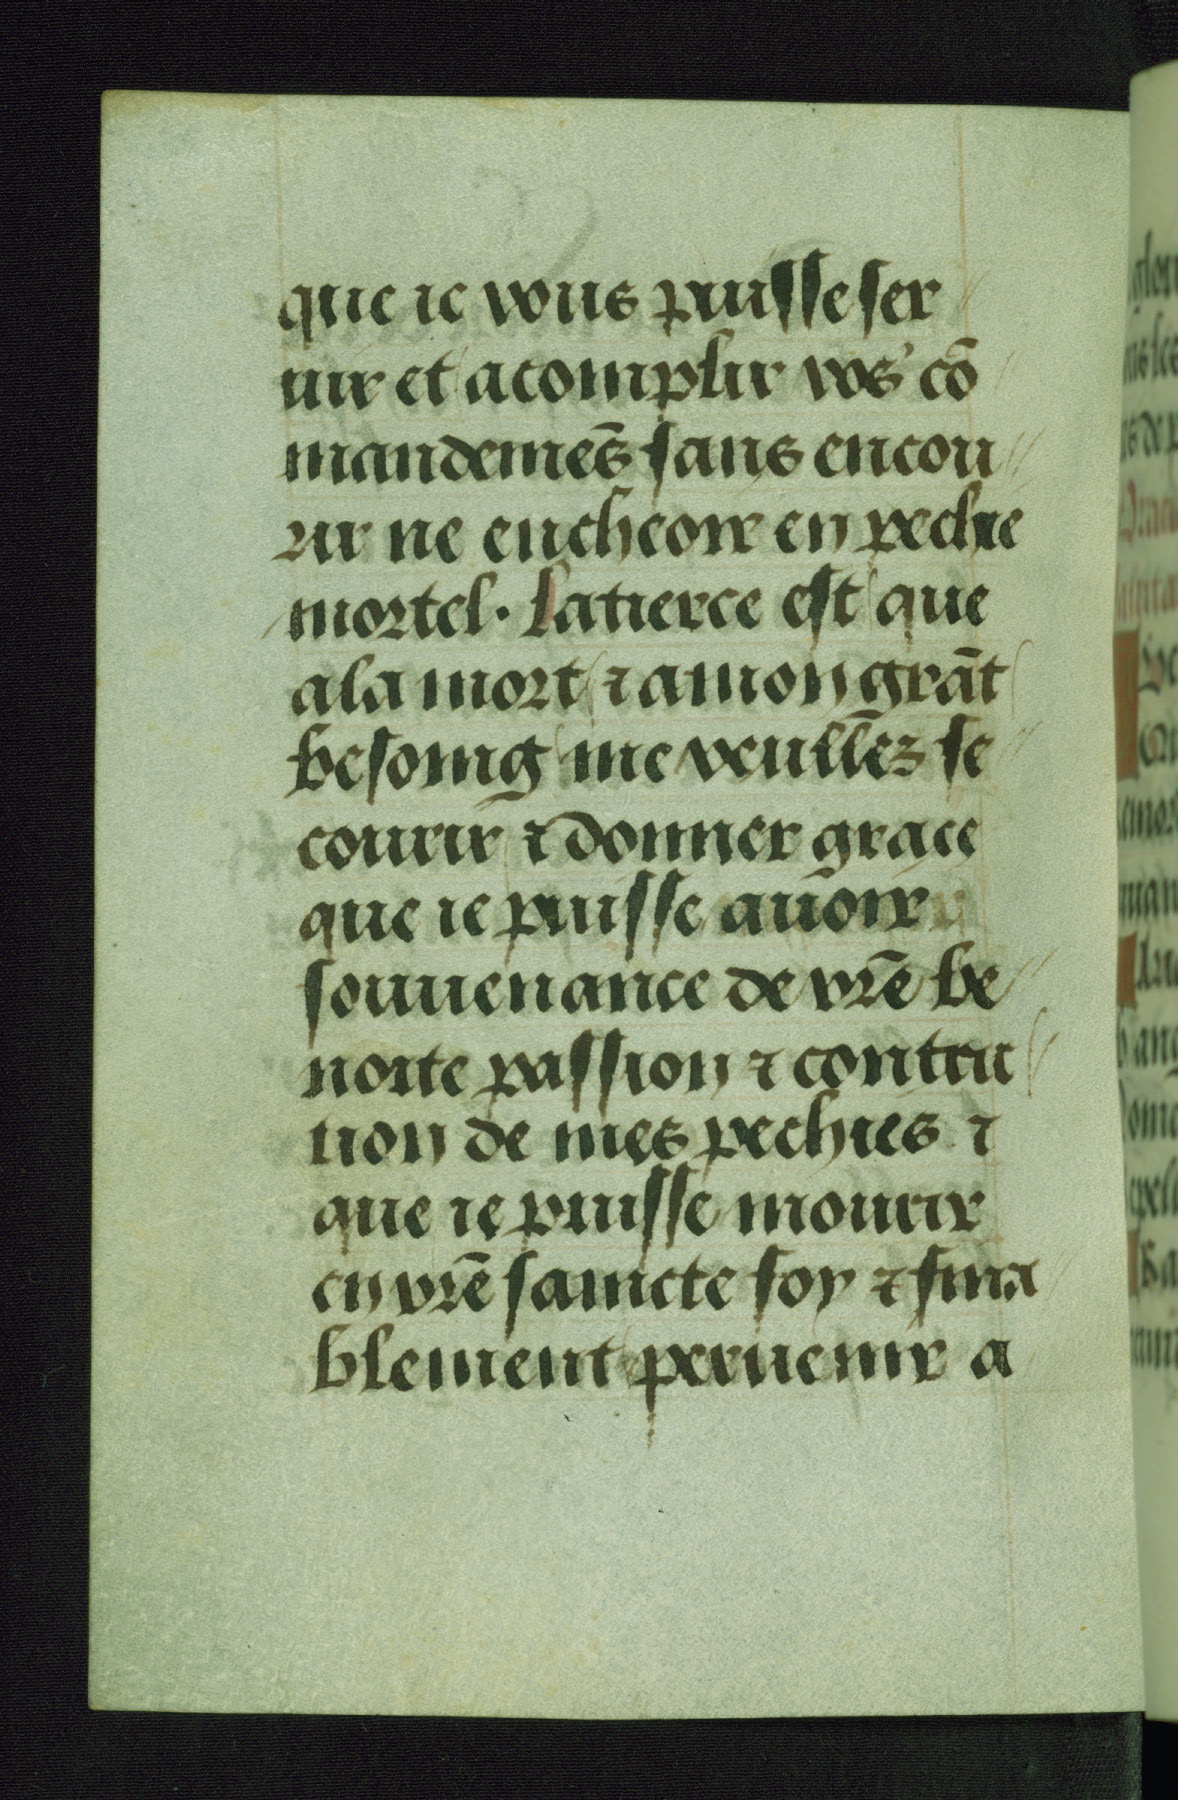 que ie vous puisse ser
uir et acomplir vos cõ
mandemẽs sans encou
rir ne encheoir en peche
mortel. La tierce est que
a la mort ⁊ a mon grãt
besoing me veulles se
courir ⁊ donner grace
que ie puisse auoir
souuenance de vr̃e be
noite passion ⁊ contri
tion de mes pechies ⁊
que ie puisse mourir
en vr̃e saincte foy ⁊ fina
blement peruenir a